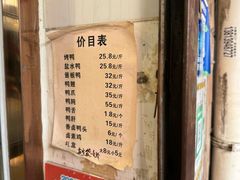 价目表
烤鸭 25.8元/斤
盐水鸭 25.8元/斤
酱板鸭 32元/斤
鸭翅 32元/斤
鸭爪 35元/斤
鸭胗 55元/斤
鸭舌 1.8元/个
鸭肝 15元/斤
香卤鸭头 6元/个
卤素鸡 18元/斤
大8元小5元